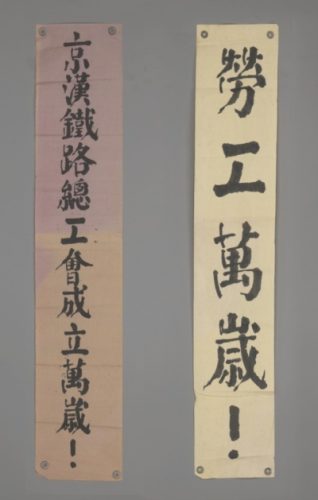 勞工萬歲！
京漢鐵路總工會成立萬歲！